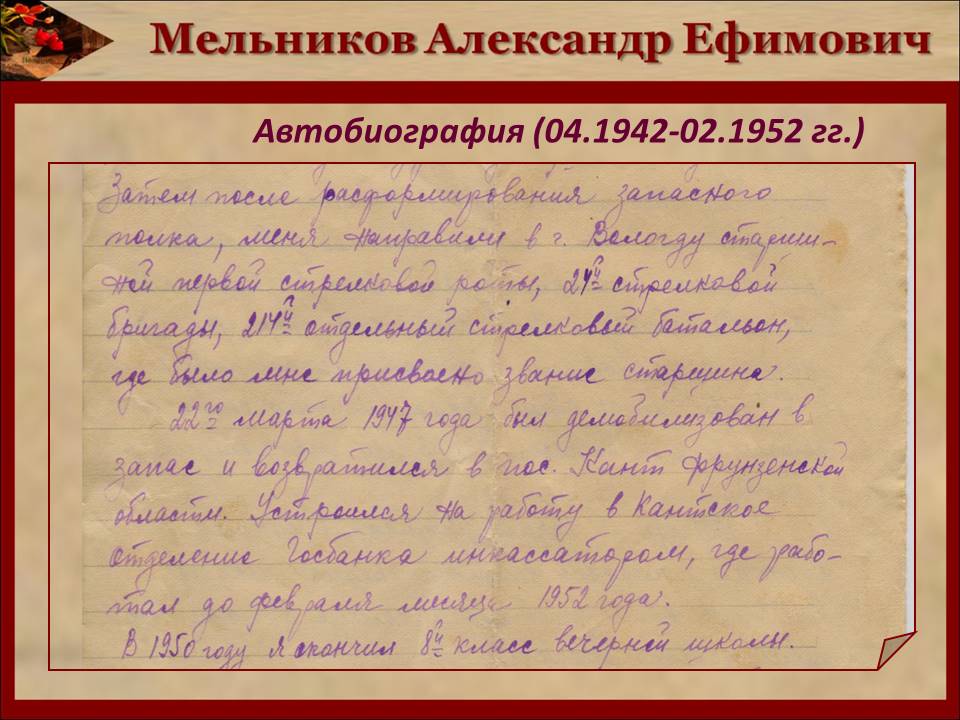 Мельников Александр Ефимович
Автобиография (04.1942-02.1952 гг.)
Затем после расформирования запасного
полка, меня направили в г. Вологду старши-
ной первой стрелковой роты, 24й стрелковой
бригады, 214й отдельный стрелковый батальон,
где было мне присвоено звание старшина.
22го марта 1947 года был демобилизован в
запас и возвратился в пос. Кант Фрунзенской
области. Устроился на работу в Кантское
отделение Госбанка инкассатором, где рабо-
тал до февраля месяца 1952 года.
В 1950 году я окончил 8й класс вечерней школы.